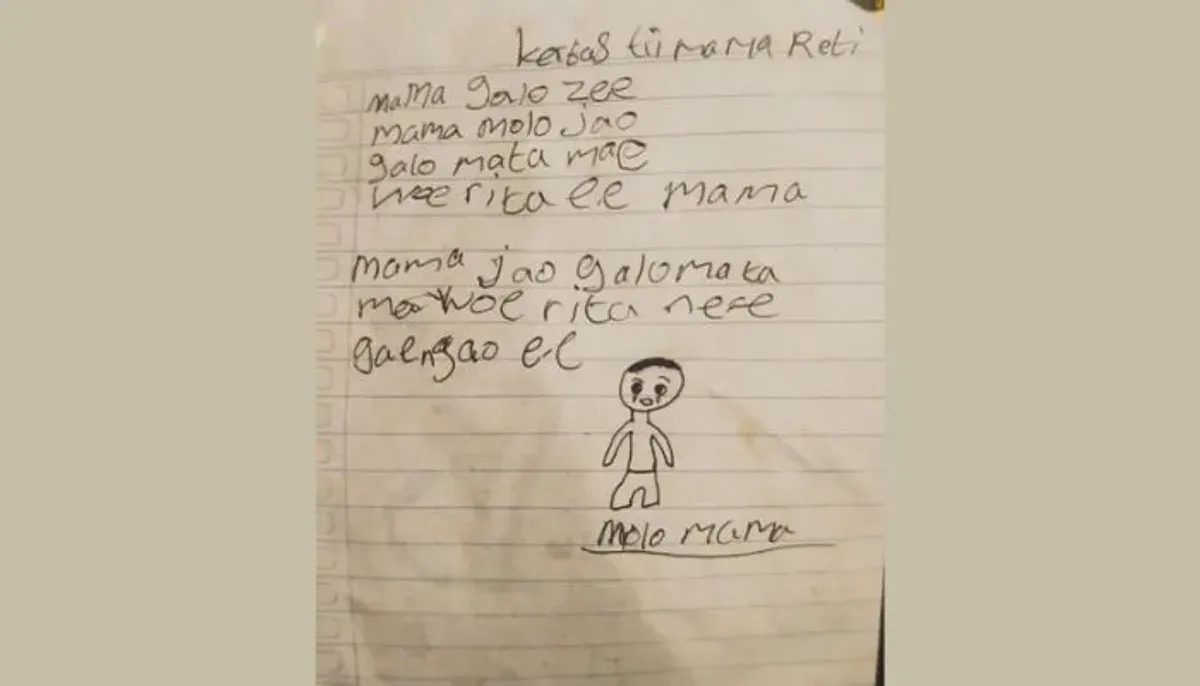 kertas tii mama Reti
mama galo zee
mama molo jao
galo mata mae
woe rita ee mama
mama jao galo mata
mae woe rita ne e
gae ngao e e
molo mama